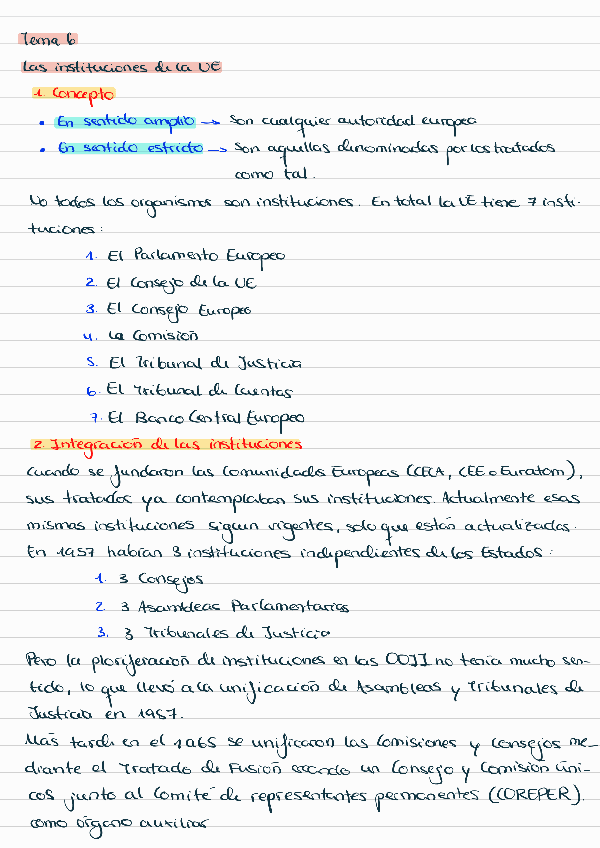 Tema 6
Las instituciones de la UE
1. Concepto
• En sentido amplio → Son cualquier autoridad europea
• En sentido estricto → Son aquellas denominadas por los tratados
como tal.
No todos los organismos son instituciones. En total la UE tiene 7 insti-
tuciones:
1. El Parlamento Europeo
2. El Consejo de la UE
3. El Consejo Europeo
4. La Comisión
5. El Tribunal de Justicia
6. El Tribunal de Cuentas
7. El Banco Central Europeo
2. Integración de las instituciones
Cuando se fundaron las Comunidades Europeas (CECA, CEE o Euratom),
sus tratados ya contemplaban sus instituciones. Actualmente esas
mismas instituciones siguen vigentes, solo que están actualizadas.
En 1957 habían 3 instituciones independientes de los Estados:
1. 3 Consejos
2. 3 Asambleas Parlamentarias
3. 3 Tribunales de Justicia
Pero la ploriferación de instituciones en las OOII no tenía mucho sen-
tido, lo que llevó a la unificación de Asambleas y Tribunales de
Justicia en 1957.
Más tarde en el 1965 se unificaron las Comisiones y Consejos me-
diante el Tratado de Fusión creando un Consejo y Comisión úni-
cos junto al Comité de representantes permanentes (COREPER)
como órgano auxiliar